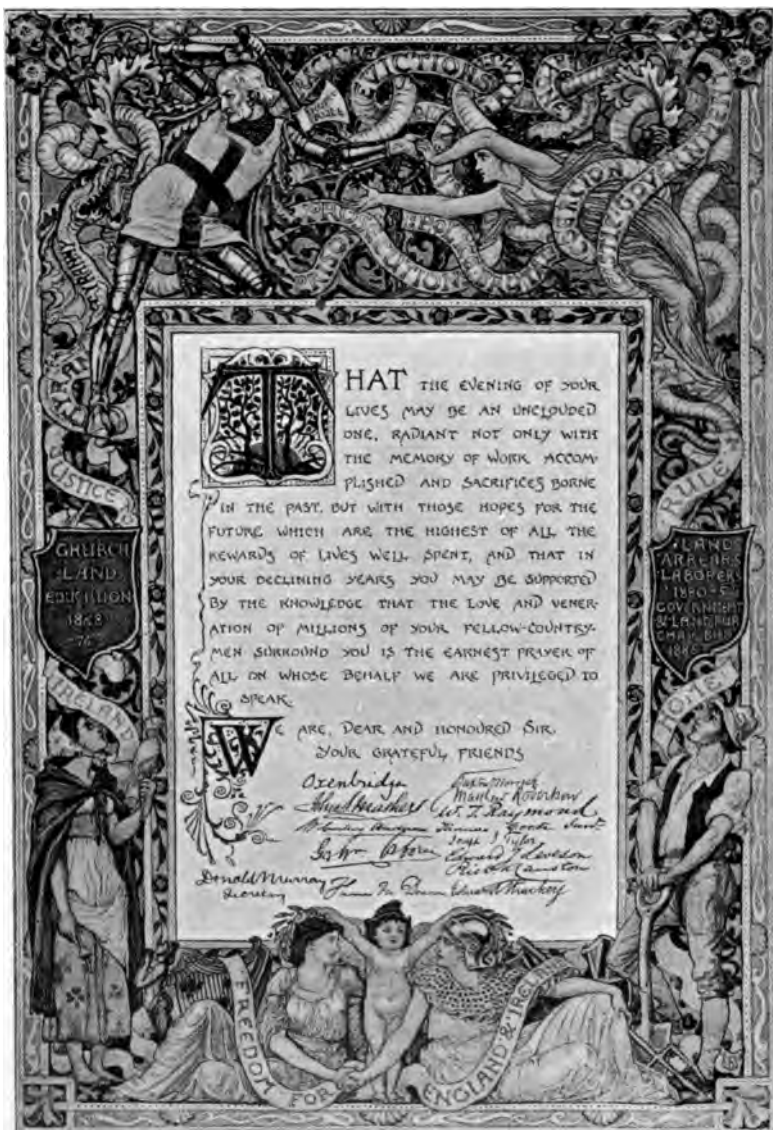 EVICTIONS
HOME RULE
PROSECUTION
COERCION
CASTLE GOVERNMENT
TYRANNY
JUSTICE
RULE
CHURCH
LAND
EDUCATION
1868
76
LAND
ARREARS
LABORERS
1880-5
GOVERNMENT
& LAND PUR
CHAS BILL
IRELAND
HOME
THAT THE EVENING OF YOUR
LIVES MAY BE AN UNCLOUDED
ONE, RADIANT NOT ONLY WITH
THE MEMORY OF WORK ACCOM-
PLISHED AND SACRIFICES BORNE
IN THE PAST, BUT WITH THOSE HOPES FOR THE
FUTURE WHICH ARE THE HIGHEST OF ALL THE
REWARDS OF LIVES WELL SPENT, AND THAT IN
YOUR DECLINING YEARS YOU MAY BE SUPPORTED
BY THE KNOWLEDGE THAT THE LOVE AND VENER-
ATION OF MILLIONS OF YOUR FELLOW-COUNTRY-
MEN SURROUND YOU IS THE EARNEST PRAYER OF
ALL ON WHOSE BEHALF WE ARE PRIVILEGED TO
SPEAK.
WE ARE, DEAR AND HONOURED SIR,
YOUR GRATEFUL FRIENDS
Oxenbridge
W. T. Raymond
Edward J. Leveson
Donald Murray
Secretary
FREEDOM FOR ENGLAND & IRELAND